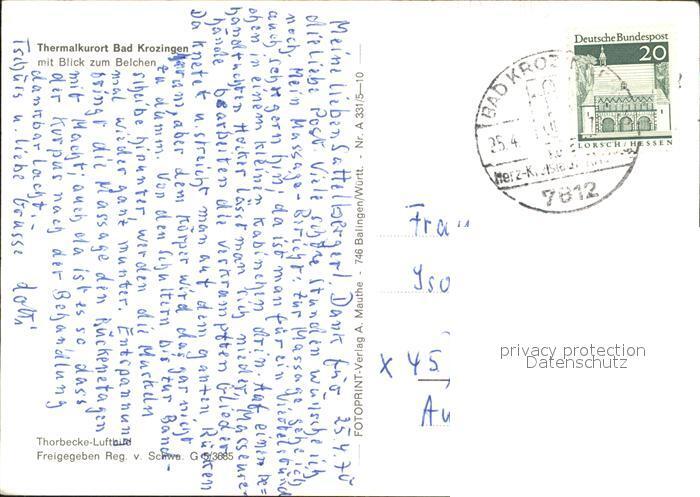 Thermalkurort Bad Krozingen
mit Blick zum Belchen
25.4.70
Meine lieben Sattelberger! Dank für
die liebe Post. Viele schöne Stunden wünsche ich
noch. Mein Massage-Bericht: Zur Massage gehe ich
auch so gern hin, da ist man für ein Viertelstünd
chen in einem kleinen Kabinchen drin. Auf einem be=
handtuchten Hocker lässt man sich nieder. Masseure-
hände bearbeiten die verkrampften Glieder.
Da knetet u. streicht man auf dem ganzen Rücken
herum, aber dem Körper wird das gar nicht
zu dumm. Von den Schultern bis zur Band-
scheibe hinunter werden die Muskeln
mal wieder ganz munter. Entspannung
bringt die Massage den Rückenetagen
mit Macht, auch da ist es so, dass
der Körper nach der Behandlung
dankbar lacht.-
Tschüss u. liebe Grüsse
Thorbecke-Luftbild
Freigegeben Reg. v. Schwa. G 5/3685
FOTOPRINT-Verlag A. Mauthe - 746 Balingen/Württ. - Nr. A 331/5—10
Deutsche Bundespost
20
LORSCH/HESSEN
BAD KROZIN
25.4.
Herz-Kreislauf
7812
Frau
Iso
x 45
Au
privacy protection
Datenschutz